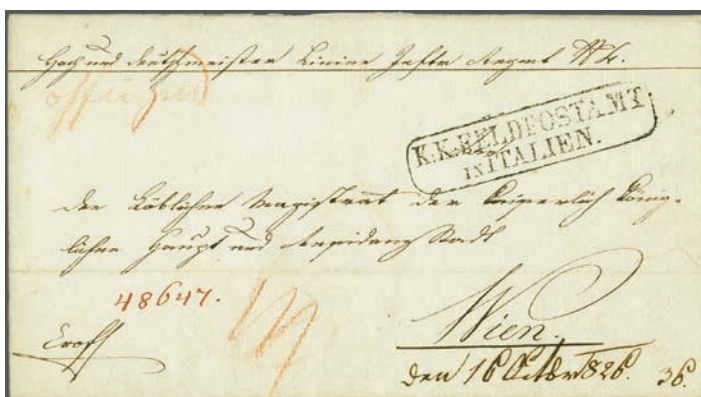 Hoch und Deutschmeister Linien Inftr Regmt № 4.
K.K.FELDPOSTAMT
IN ITALIEN.
Der Löblichen Magistrat der Kaiserlich König-
lichen Haupt und Residenz Stadt
48647.
Wien.
den 16 1826. 36.